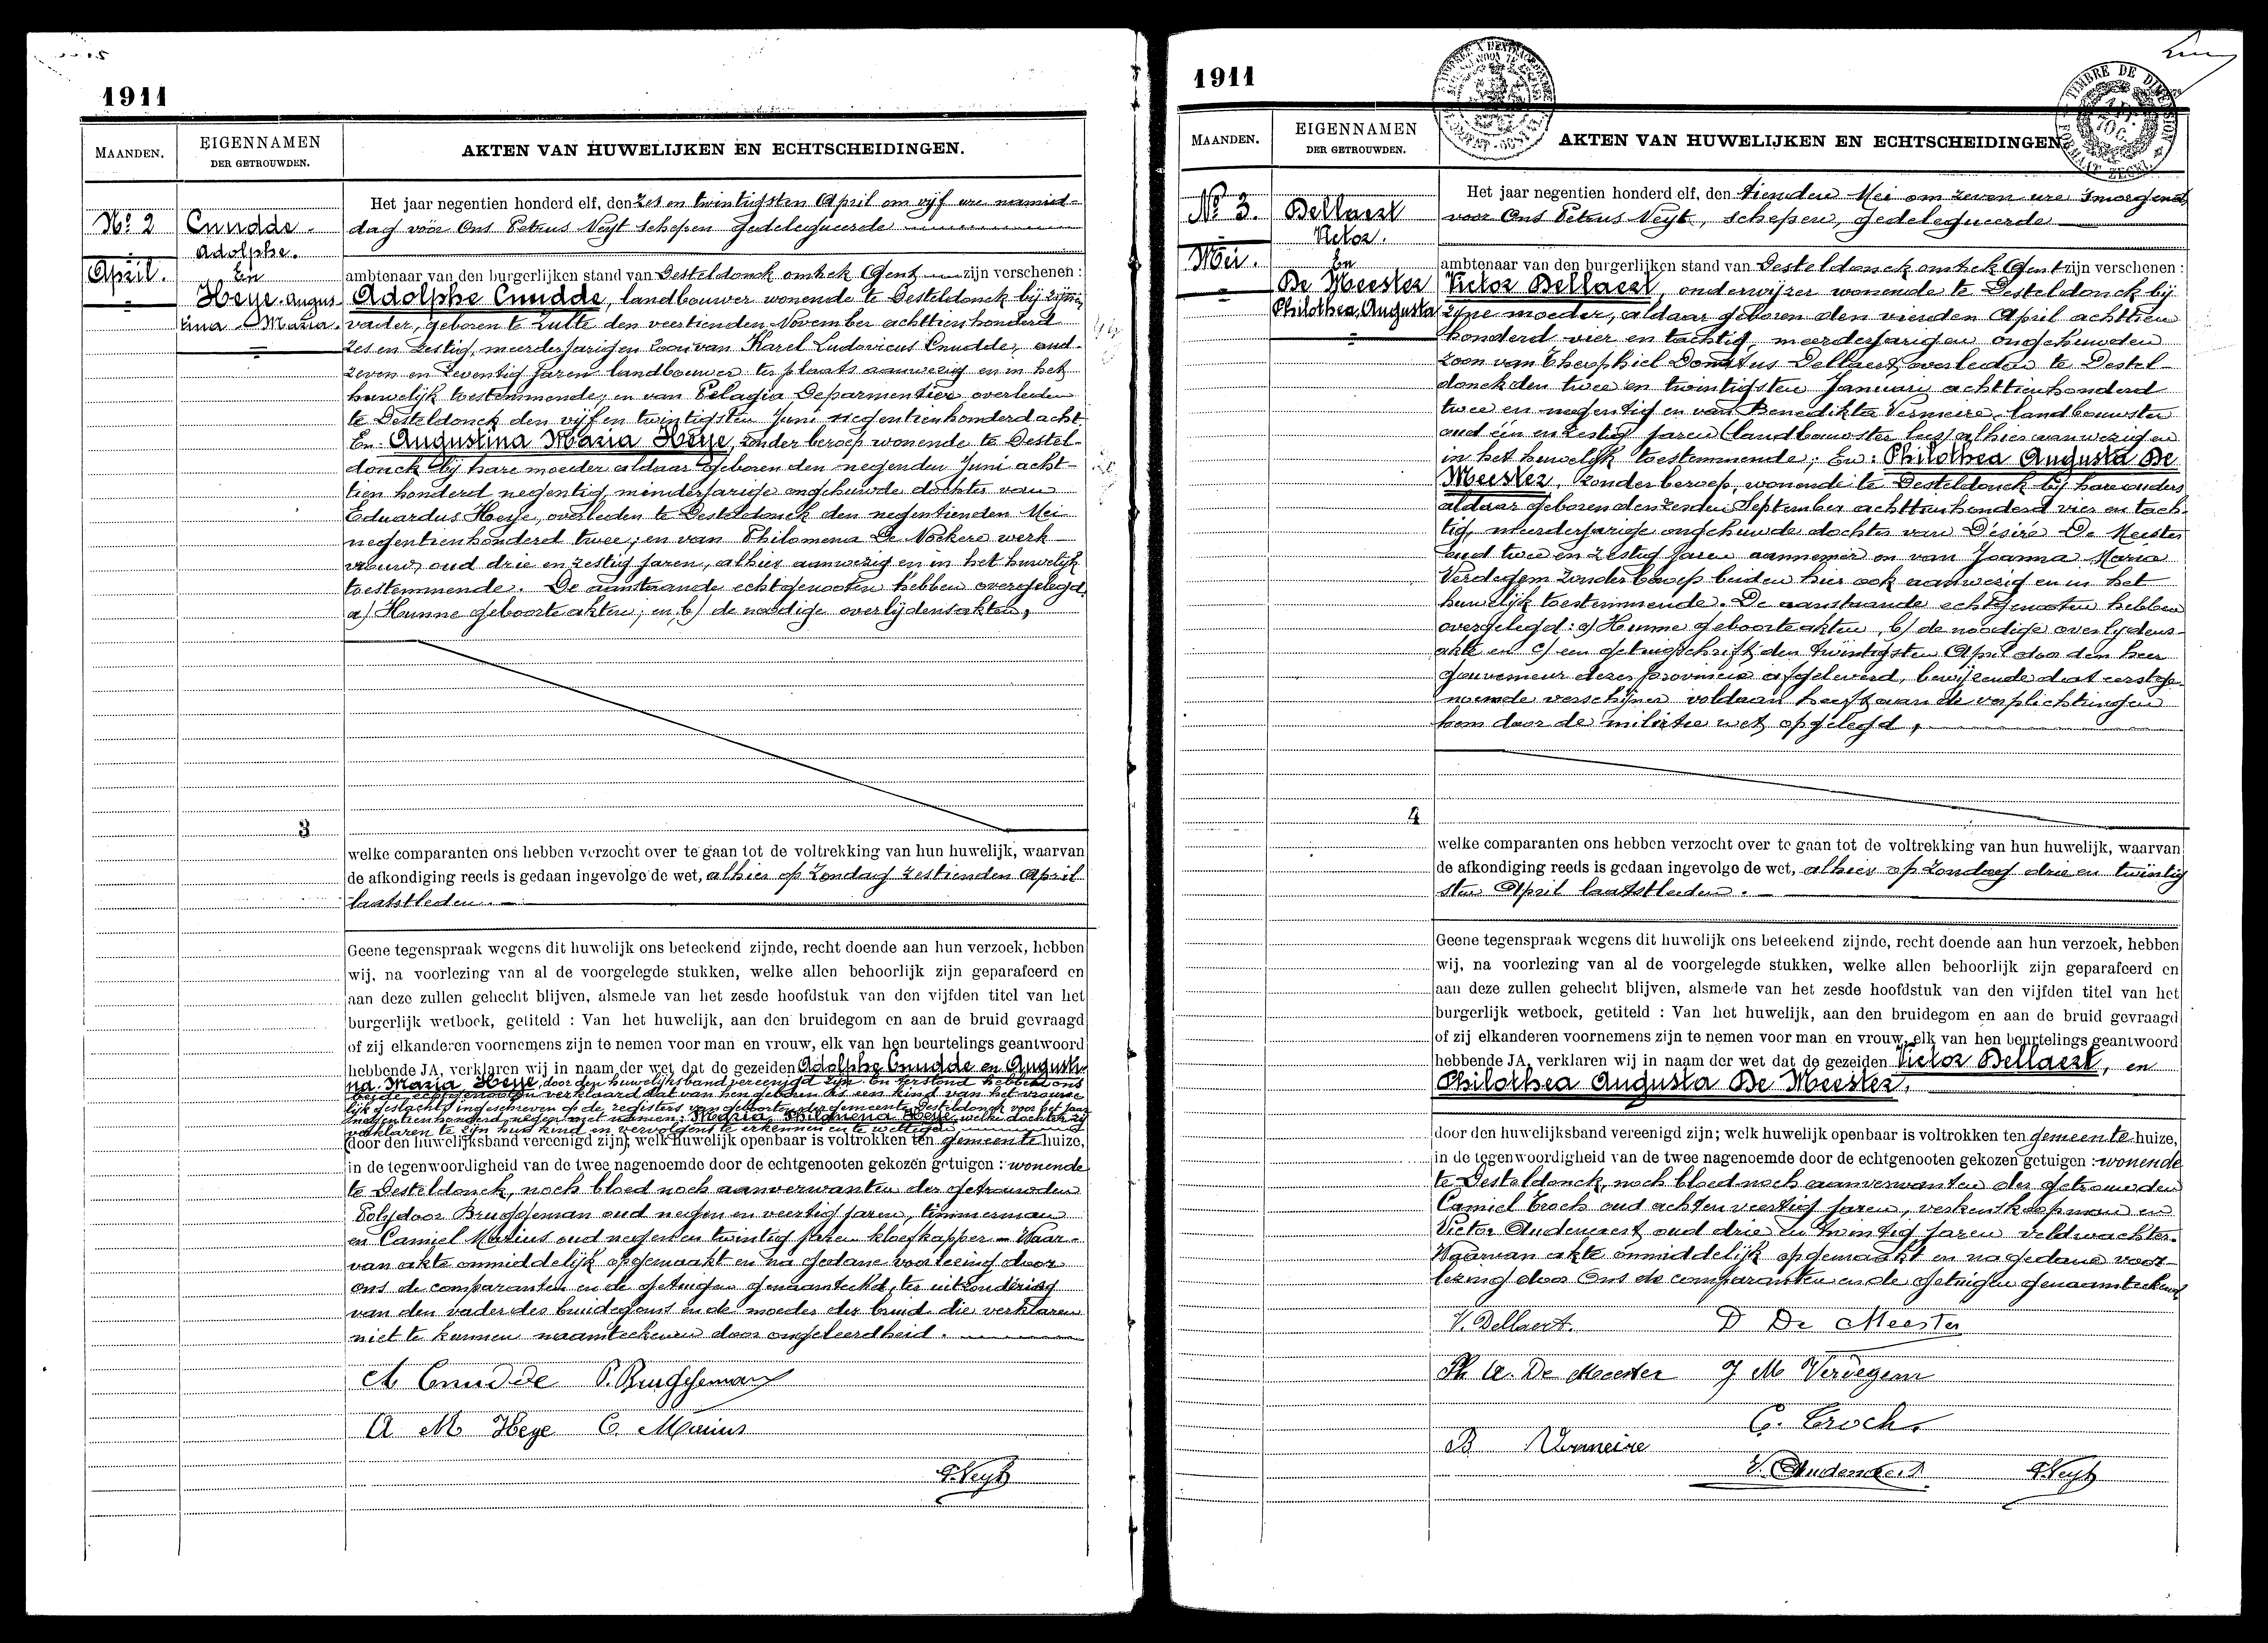 1911
MAANDEN.
EIGENNAMEN
DER GETROUWDEN.
AKTEN VAN HUWELIJKEN EN ECHTSCHEIDINGEN.
No 2
April.
Cnudde
Adolphe.
En
Heye Augus
tina Maria.
Het jaar negentien honderd elf, den zes en twintigsten April om vijf ure namid-
dag vóór Ons Petrus Veyt schepen gedelegueerde
ambtenaar van den burgerlijken stand van Desteldonck omtrek Gent zijn verschenen :
Adolphe Cnudde, landbouwer wonende te Desteldonck bij zijnen
vader, geboren te Zulte den veertienden November achttienhonderd
zes en zestig, meerderjarigen zoon van Karel Ludovicus Cnudde, oud
zeven en zeventig jaren landbouwer ter plaats aanwezig en in het
huwelijk toestemmende, en van Pelagia Deparmentier overleden
te Desteldonck den vijf en twintigsten Juni negentienhonderd acht
En Augustina Maria Heye, zonder beroep wonende te Destel-
donck bij hare moeder aldaar geboren den negenden Juni acht-
tien honderd negentig, minderjarige ongehuwde dochter van
Eduardus Heye, overleden te Desteldonck den negentienden Mei
negentienhonderd twee, en van Philomena De Nockere werk-
vrouw, oud drie en zestig jaren, alhier aanwezig en in het huwelijk
toestemmende. De aanstaande echtgenooten hebben overgelegd.
a/ Hunne geboorteakten; en b/ de noodige overlijdensakten,
3
welke comparanten ons hebben verzocht over te gaan tot de voltrekking van hun huwelijk, waarvan
de afkondiging reeds is gedaan ingevolge de wet, alhier op Zondag zestienden April
laatstleden.
Geene tegenspraak wegens dit huwelijk ons beteekend zijnde, recht doende aan hun verzoek, hebben
wij, na voorlezing van al de voorgelegde stukken, welke allen behoorlijk zijn geparafeerd en
aan deze zullen gehecht blijven, alsmede van het zesde hoofdstuk van den vijfden titel van het
burgerlijk wetboek, getiteld : Van het huwelijk, aan den bruidegom en aan de bruid gevraagd
of zij elkanderen voornemens zijn te nemen voor man en vrouw, elk van hen beurtelings geantwoord
hebbende JA, verklaren wij in naam der wet, dat de gezeiden Adolphe Cnudde en Augusti-
na Maria Heye, door den huwelijksband vereenigd zijn. En terstond hebben ons
beide echtgenooten verklaard dat van hen geboren is een kind van het vrouwe-
lijk geslacht, ingeschreven op de registers van geboorte der gemeente Desteldonck voor het jaar
negentienhonderd negen met namen: Maria Philomena Heye, welke dochter zij
verklaren te zijn hun kind en vervolgens te erkennen en te wettigen
(door den huwelijksband vereenigd zijn); welk huwelijk openbaar is voltrokken ten gemeentehuize,
in de tegenwoordigheid van de twee nagenoemde door de echtgenooten gekozen getuigen : wonende
te Desteldonck, noch bloed noch aanverwanten der getrouwden
Polydoor Bruggeman oud negen en veertig jaren, timmerman
en Camiel Marius oud negen en twintig jaren kloefkapper - Waar-
van akte onmiddelijk opgemaakt en na gedane voorlezing door
ons de comparanten en de getuigen genaamteekd, ter uitzondering
van den vader des bruidegoms en de moeder der bruid die verklaren
niet te kunnen naamteekenen door ongeleerdheid.
A Cnudde P. Bruggeman
A M Heye C. Marius
P. Veyt
1911
MAANDEN.
EIGENNAMEN
DER GETROUWDEN.
AKTEN VAN HUWELIJKEN EN ECHTSCHEIDINGEN
No 3.
Mei.
Dellaert
Victor.
En
De Meester
Philothea, Augusta
Het jaar negentien honderd elf, den tienden Mei om zeven ure 's morgends
voor Ons Petrus Veyt, schepen, gedelegueerde
ambtenaar van den burgerlijken stand van Desteldonck omtrek Gent zijn verschenen :
Victor Dellaert, onderwijzer wonende te Desteldonck bij
zijne moeder, aldaar geboren den vierden April achttien
honderd vier en tachtig, meerderjarigen ongehuwden
zoon van Theophiel Donatus Dellaert, overleden te Destel-
donck den twee en twintigsten January achttienhonderd
twee en negentig en van Benedikta Vermeire, landbouwster
oud één en zestig jaren (landbouwster lees) alhier aanwezig en
in het huwelijk toestemmende; En: Philothea Augusta De
Meester, zonder beroep, wonende te Desteldonck bij hare ouders
aldaar geboren den zesden September achttienhonderd vier en tach-
tig, meerderjarige ongehuwde dochter van Désiré De Meester
oud twee en zestig jaren aannemer en van Joanna Maria
Verdegem zonder beroep beiden hier ook aanwezig en in het
huwelijk toestemmende. De aanstaande echtgenooten hebben
overgelegd: a/ Hunne geboorteakten, b/ de noodige overlijdens-
akte en c/ een getuigschrift den twintigsten April door den heer
gouverneur dezer provincie afgeleverd, bewijzende dat eerstge-
noemde verschijner voldaan heeft aan de verplichtingen
hem door de militie wet opgelegd,
4
welke comparanten ons hebben verzocht over te gaan tot de voltrekking van hun huwelijk, waarvan
de afkondiging reeds is gedaan ingevolge de wet, alhier op Zondag drie en twintig
sten April laatstleden.
Geene tegenspraak wegens dit huwelijk ons beteekend zijnde, recht doende aan hun verzoek, hebben
wij, na voorlezing van al de voorgelegde stukken, welke allen behoorlijk zijn geparafeerd en
aan deze zullen gehecht blijven, alsmede van het zesde hoofdstuk van den vijfden titel van het
burgerlijk wetboek, getiteld : Van het huwelijk, aan den bruidegom en aan de bruid gevraagd
of zij elkanderen voornemens zijn te nemen voor man en vrouw, elk van hen beurtelings geantwoord
hebbende JA, verklaren wij in naam der wet dat de gezeiden Victor Dellaert, en
Philothea Augusta De Meester,
door den huwelijksband vereenigd zijn; welk huwelijk openbaar is voltrokken ten gemeentehuize,
in de tegenwoordigheid van de twee nagenoemde door de echtgenooten gekozen getuigen : wonende
te Desteldonck, noch bloed noch aanverwanten der getrouwden
Camiel Troch oud acht en veertig jaren, verkenskoopman en
Victor Audenaert oud drie en twintig jaren veldwachter.
Waarvan akte onmiddelijk opgemaakt en na gedane voor-
lezing door Ons de comparanten en de getuigen genaamteekend
V. Dellaert. D De Meester
Ph A. De Meester J M Verdegem
C. Troch.
B Vermeire
V. Audenaert P. Veyt